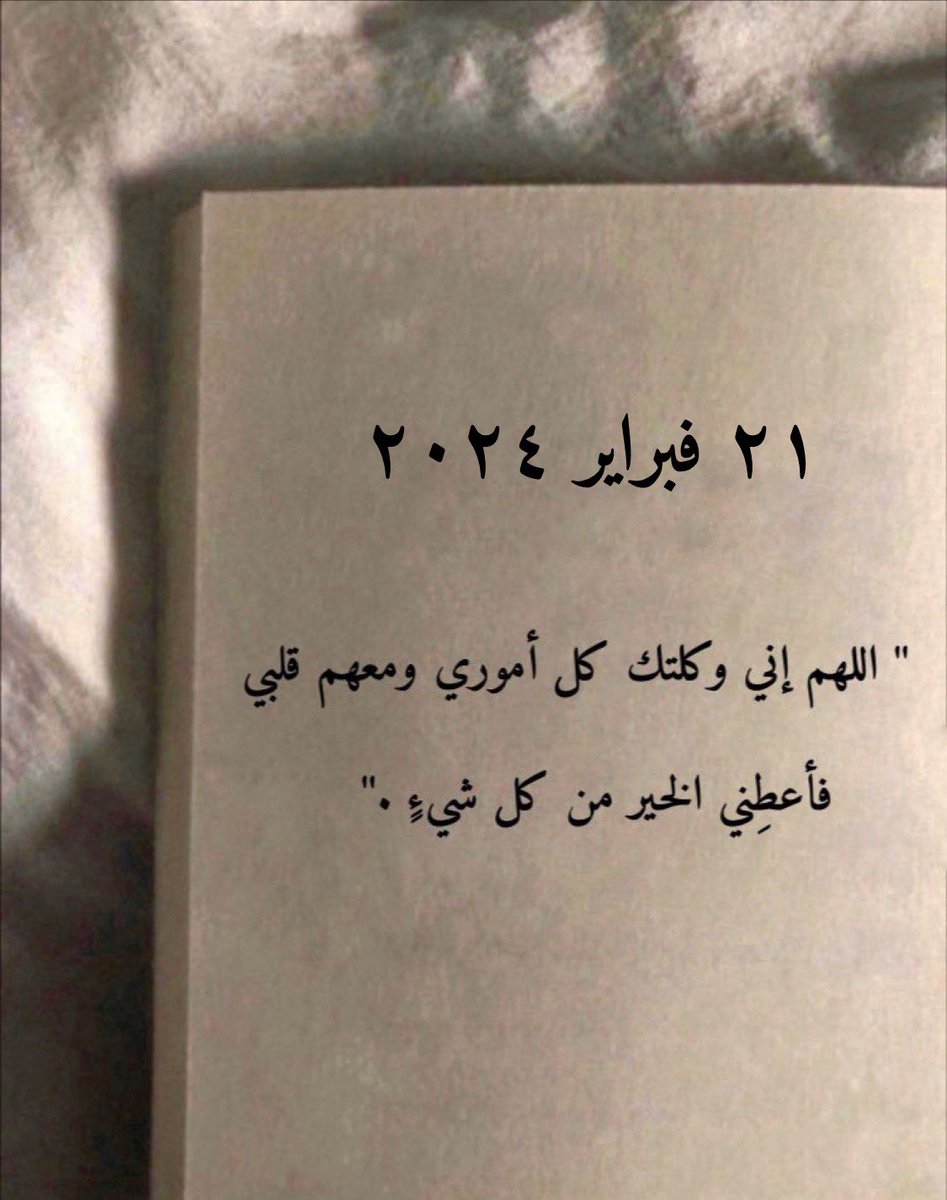 ٢١ فبراير ٢٠٢٤
" اللهم إني وكلتك كل أموري ومعهم قلبي
فأعطِني الخير من كل شيءٍ ."